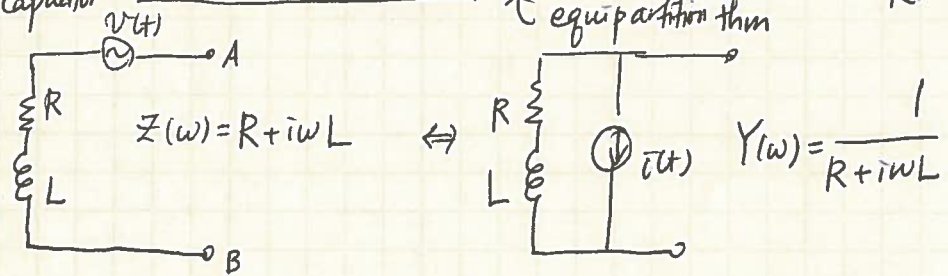 capacitor
equipartition thm
v(t)
A
R
Z(ω) = R + iωL
L
B
⇔
R
L
i(t)
Y(ω) = 1 / R + iωL